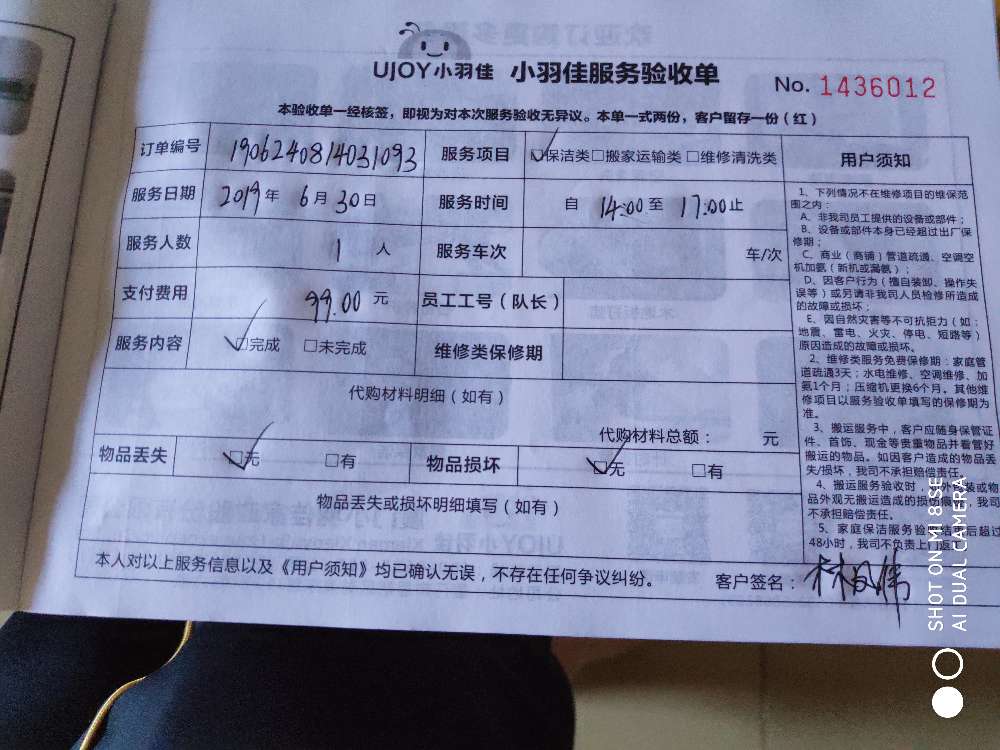 UJOY小羽佳 小羽佳服务验收单
No. 1436012
本验收单一经核签，即视为对本次服务验收无异议。本单一式两份，客户留存一份（红）
订单编号 1906240814031093 服务项目 ☑保洁类□搬家运输类□维修清洗类
服务日期 2019年 6月30日 服务时间 自 14:00至 17:00止
服务人数 1 人 服务车次 车/次
支付费用 99.00 元 员工工号（队长）
服务内容 ☑完成 □未完成 维修类保修期
代购材料明细（如有）
代购材料总额： 元
物品丢失 ☑无 □有 物品损坏 ☑无 □有
物品丢失或损坏明细填写（如有）
本人对以上服务信息以及《用户须知》均已确认无误，不存在任何争议纠纷。 客户签名：
用户须知
1、下列情况不在维修项目的维保范
围之内：
A、非我司员工提供的设备或部件；
B、设备或部件本身已经超过出厂保
修期；
C、商业（商铺）管道疏通、空调空
机加氨（新机或漏氨）；
D、因客户行为（擅自装卸、操作失
误等）或另请非我司人员检修所造成
的故障或损坏；
E、因自然灾害等不可抗拒力（如：
地震、雷电、火灾、停电、短路等）
原因造成的故障或损坏。
2、维修类服务免费保修期：家庭管
道疏通3天；水电维修、空调维修、加
氨1个月；压缩机更换6个月。其他维
修项目以服务验收单填写的保修期为
准。
3、搬运服务中，客户应随身保管证
件、首饰、现金等贵重物品并看管好
搬运的物品。如因客户造成的物品丢
失/损坏，我司不承担赔偿责任。
4、搬运服务验收时，外包装或物
品外观无搬运造成的损伤痕，我司
不承担赔偿责任。
5、家庭保洁服务验收结束后超过
48小时，我司不负责上门返
SHOT ON MI 8SE
AI DUAL CAMERA